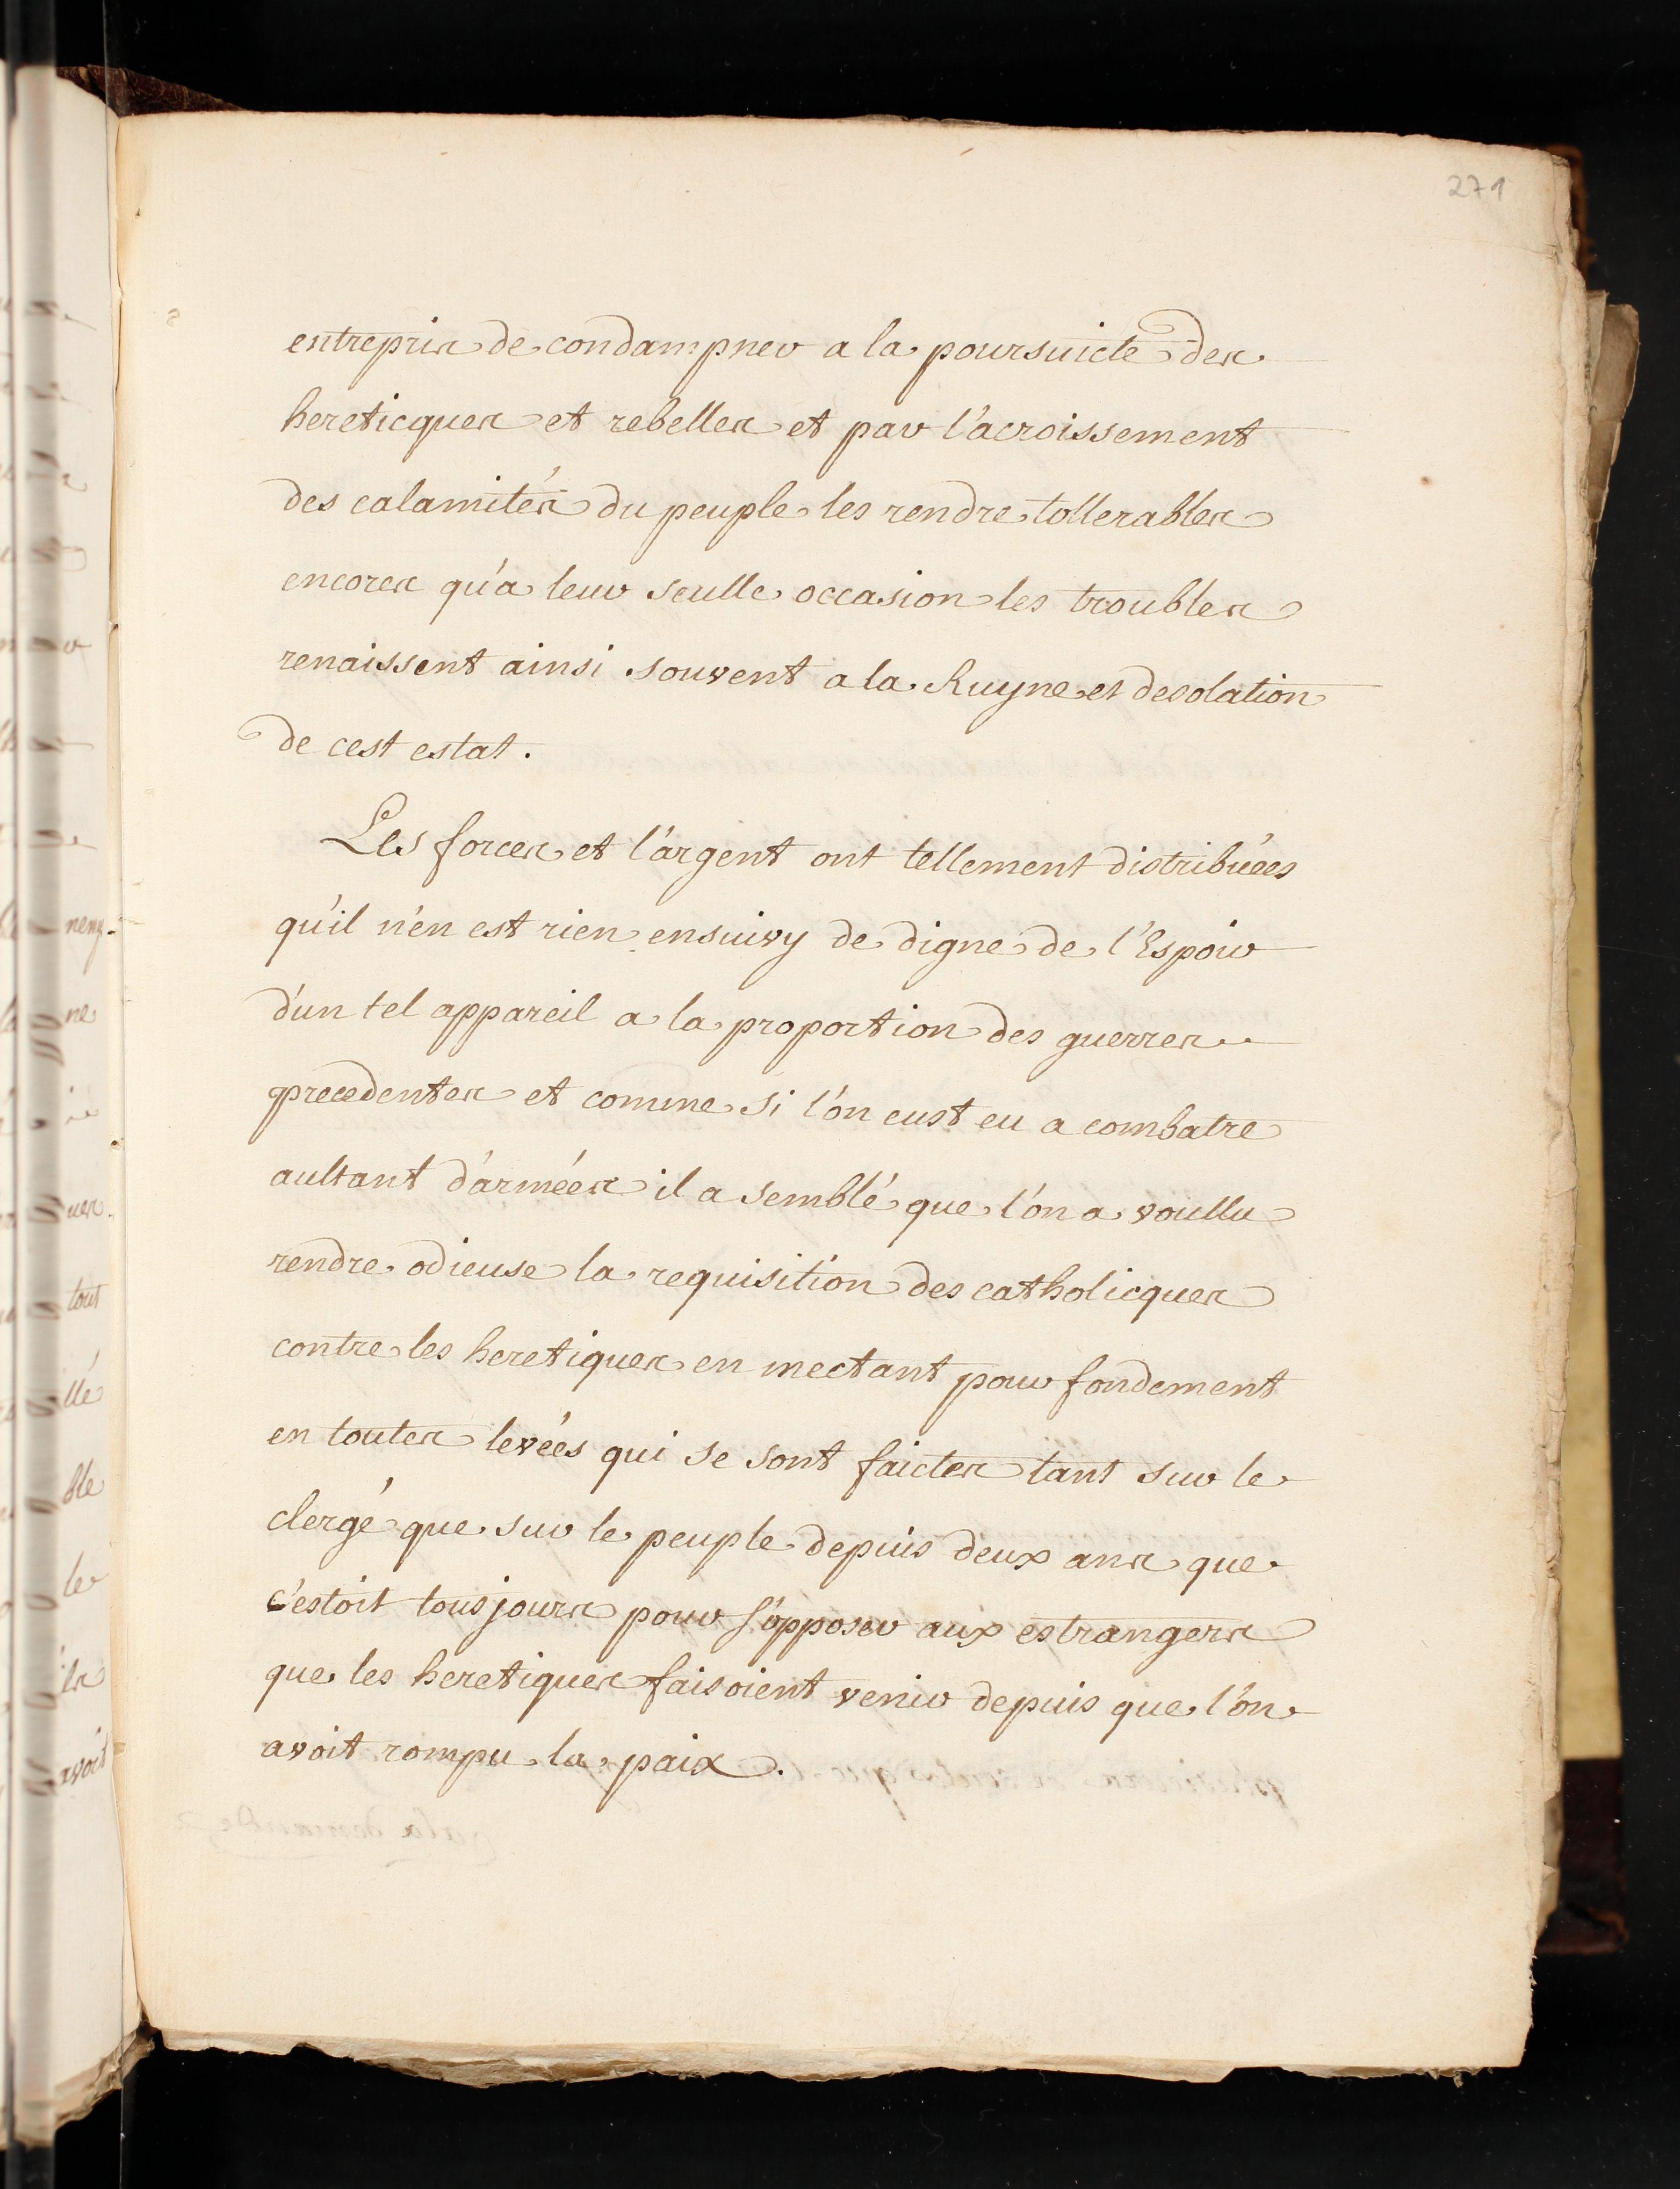 271
entrepris de condampner a la poursuicte des
hereticques et rebelles et par l'acroissement
des calamités du peuple les rendre tollerables
encores qu'a leur seulle occasion les troubles
renaissent ainsi souvent a la Ruyne et desolation
de cest estat.
Les forces et l'argent ont tellement distribuées
qu'il n'en est rien ensuivy de digne de l'Espoir
d'un tel appareil a la proportion des guerres
precedentes et comme si l'on eust eu a combatre
aultant d'armées il a semblé que l'on a voullu
rendre odieuse la requisition des catholicques
contre les heretiques en mectant pour fondement
en toutes levées qui se sont faictes tant sur le
clergé que sur le peuple depuis deux ans que
c'estoit tousjours pour s'opposer aux estrangers
que les heretiques faisoient venir depuis que l'on
avoit rompu la paix.